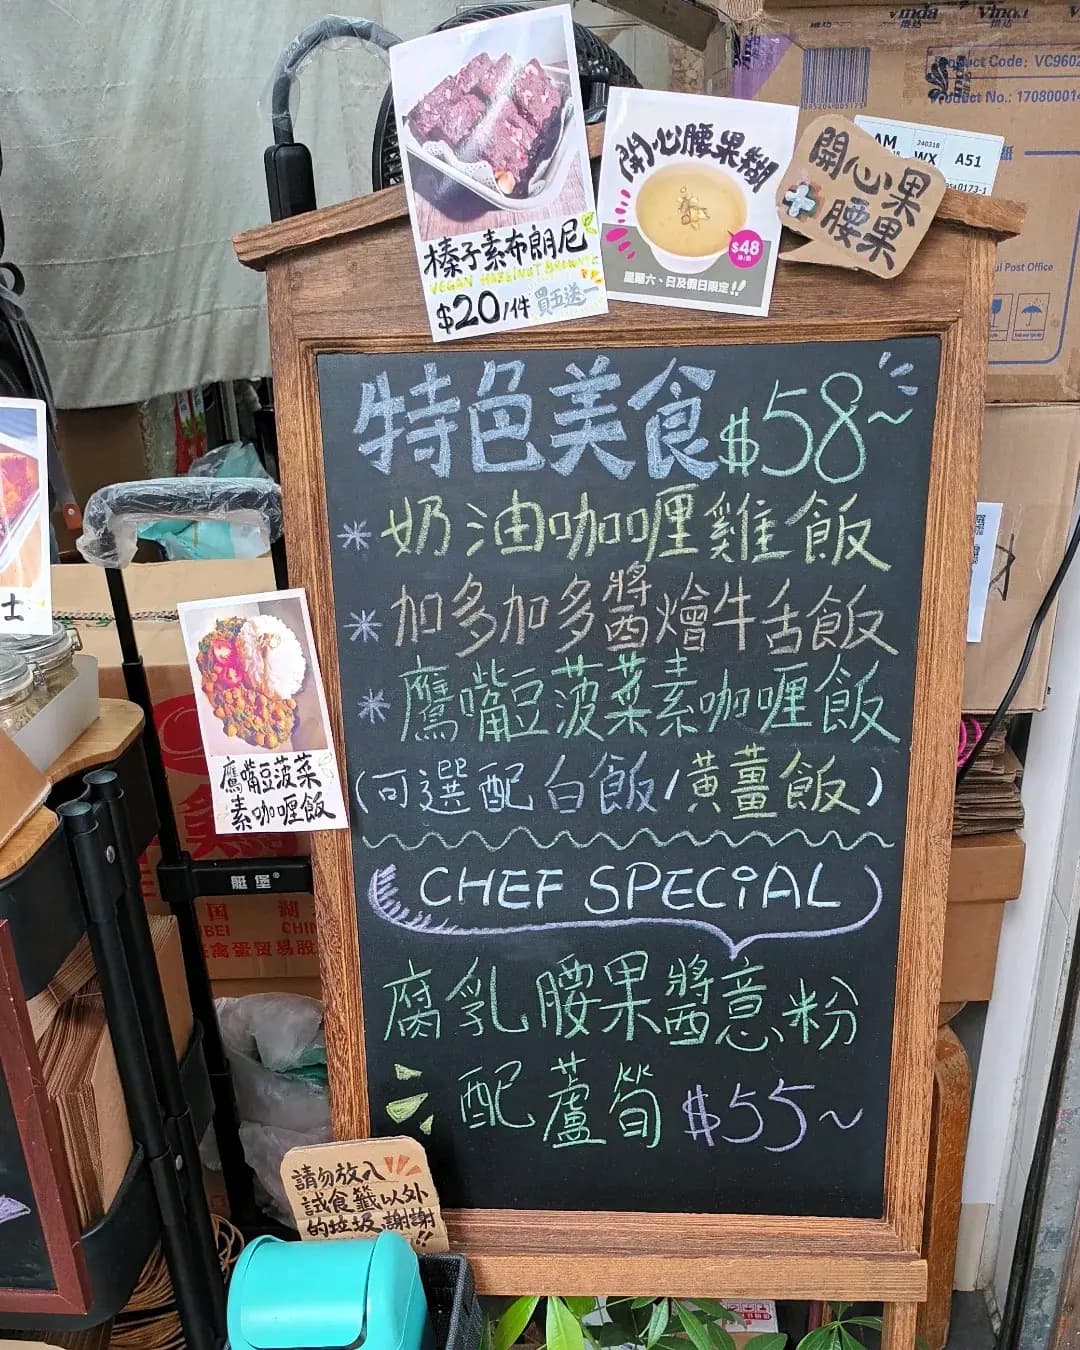 Vinda
Vinda
維達
維達
Product Code: VC9602
Product No.: 17080001
AM
240318
WX
A51
0173-1
Post Office
榛子素布朗尼
VEGAN HAZELNUT BROWNIE
$20/件 買五送一
開心腰果糊
$48
星期六、日及假日限定!!
開心果
+腰果
特色美食 $58~
*奶油咖喱雞飯
*加多加多醬燴牛舌飯
*鷹嘴豆菠菜素咖喱飯
(可選配白飯/黃薑飯)
CHEF SPECiAL
腐乳腰果醬意粉
配蘆筍 $55~
士
鷹嘴豆菠菜
素咖喱飯
艇堡®
国
湖
BEI
CHIN
禽蛋贸易股
請勿放入
試食籤以外
的垃圾 謝謝!!